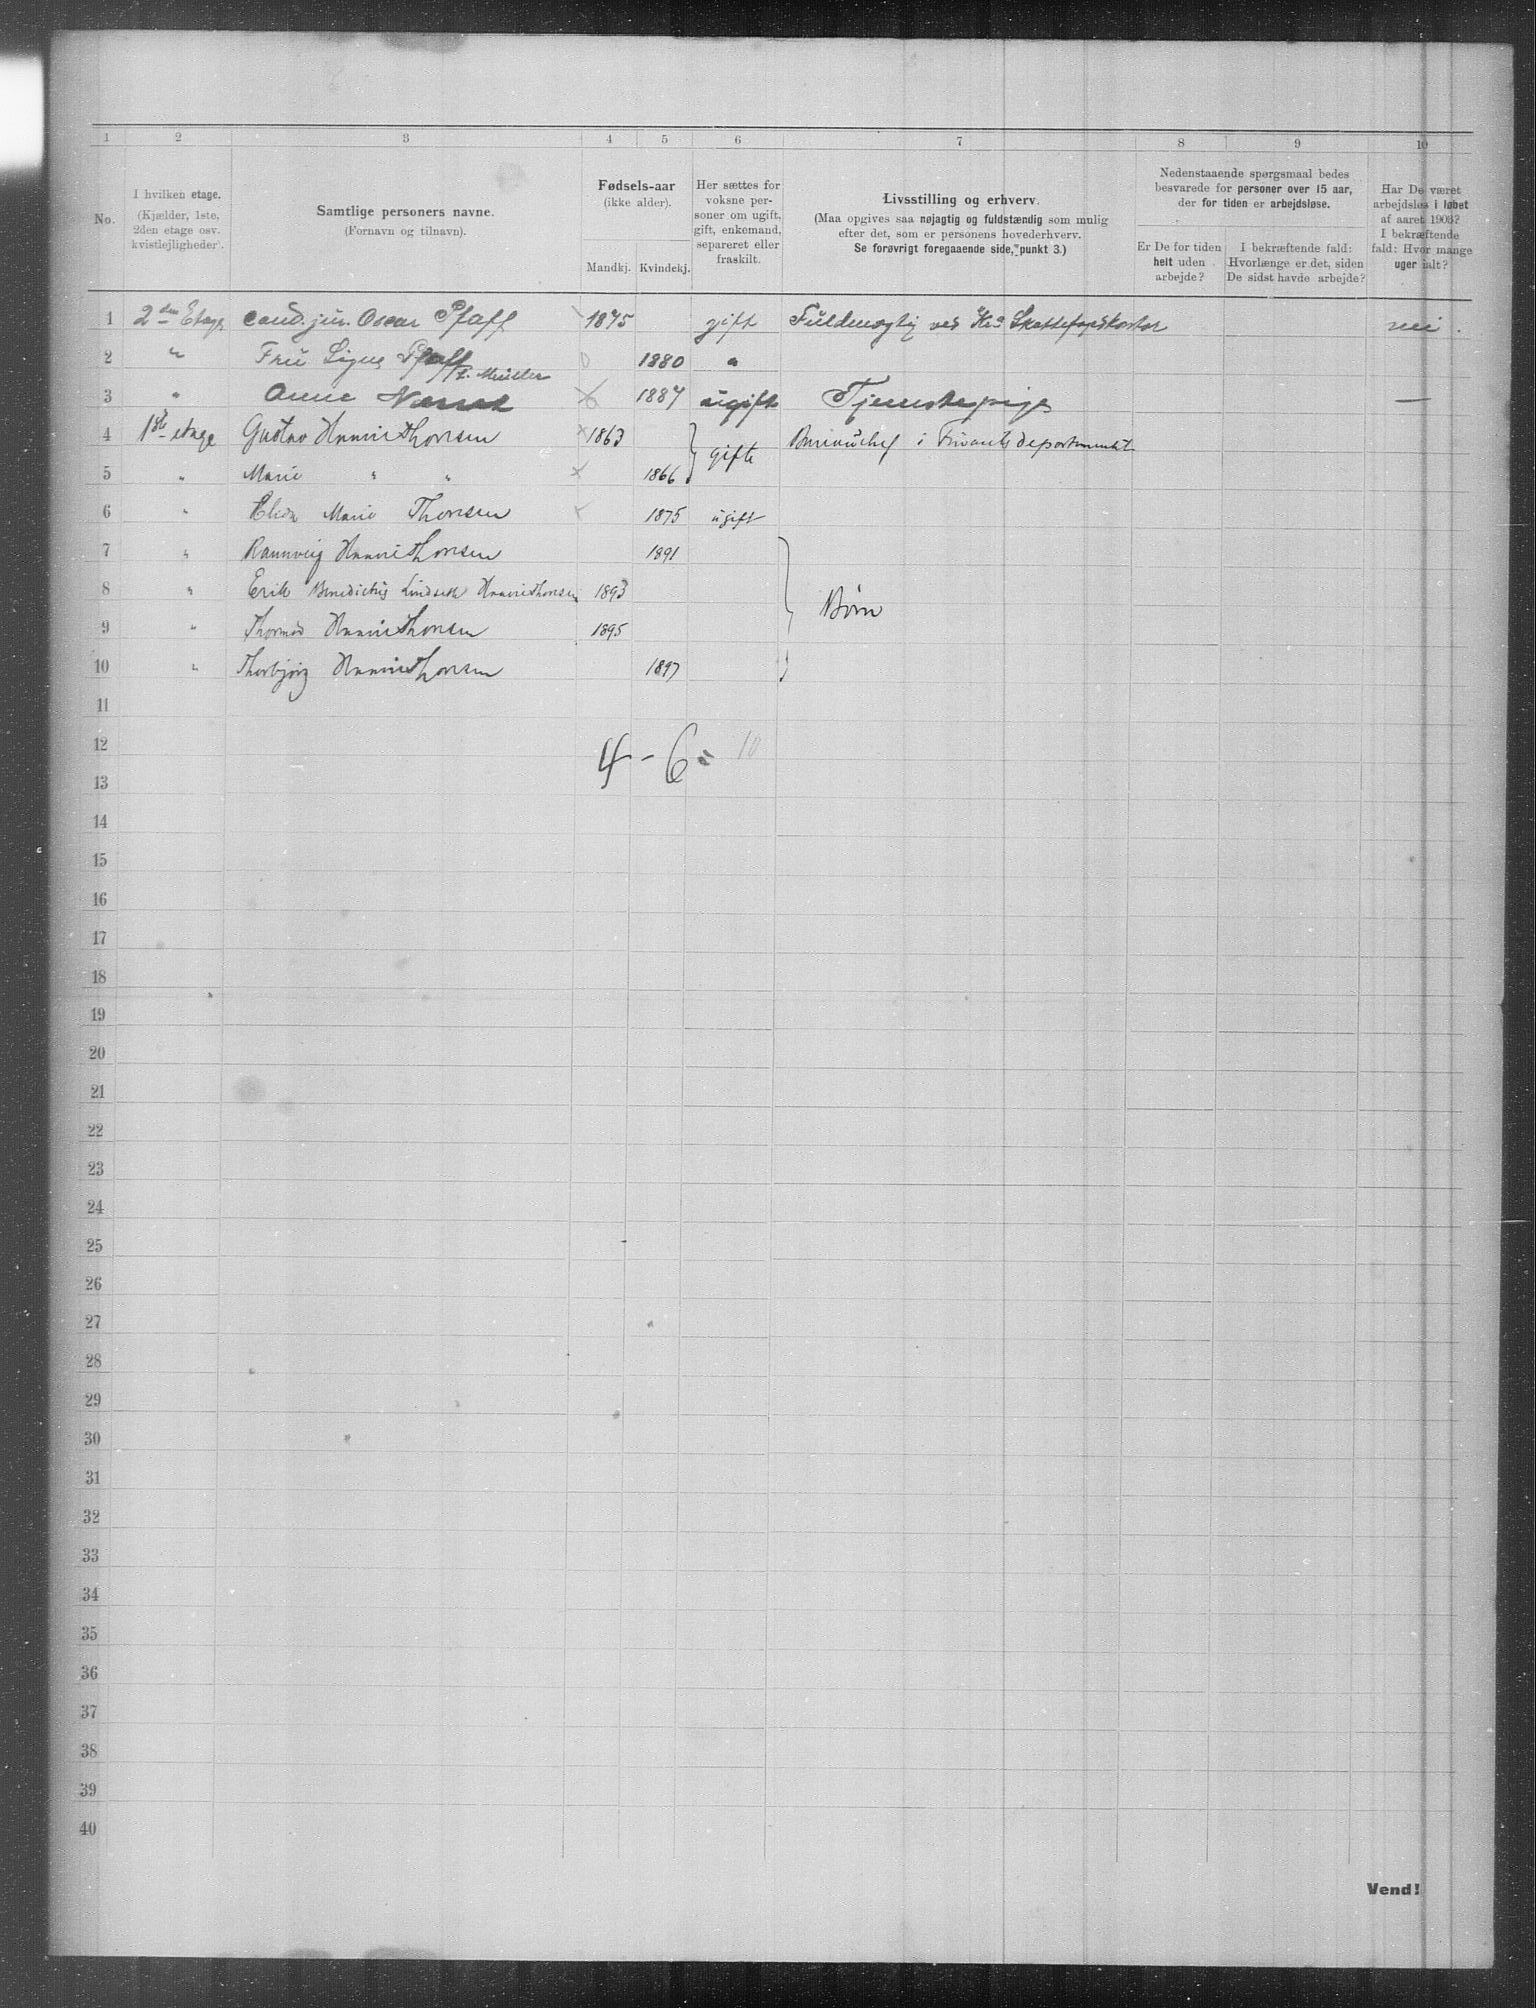 1 2 3 4 5 6 7 8 9 10
No.
I hvilken etage.
(Kjælder, 1ste,
2den etage osv.
kvistlejligheder).
Samtlige personers navne.
(Fornavn og tilnavn).
Fødsels-aar
(ikke alder).
Mandkj. Kvindekj.
Her sættes for
voksne per-
soner om ugift,
gift, enkemand,
separeret eller
fraskilt.
Livsstilling og erhverv.
(Maa opgives saa nøjagtig og fuldstændig som mulig
efter det, som er personens hovederhverv.
Se forøvrigt foregaaende side, punkt 3.)
Nedenstaaende spørgsmaal bedes
besvarede for personer over 15 aar,
der for tiden er arbejdsløse.
Er De for tiden
helt uden
arbejde?
I bekræftende fald:
Hvorlænge er det, siden
De sidst havde arbejde?
Har De været
arbejdsløs i løbet
af aaret 1903?
I bekræftende
fald: Hvor mange
uger ialt?
1 2den Etage cand. jur. Oscar Pfaff 1875 gift Fuldmægtig ved Kra Skattefogdkontor nei.
2 " Frü Signe Pfaff f. Müller 1880 "
3 " Anne 1887 ugift Tjenestepige —
4 1ste etage Gustav Thorsen 1863 gifte i Finantsdepartementet
5 " Marie " " 1866
6 " Marie Thorsen 1875 ugift
7 " Rannveig Thorsen 1891
8 " Erik Benedictus Lindseth 1893 Børn
9 " Thormod Thorsen 1895
10 " Thorbjørg Thorsen 1897
11
12 4 - 6 = 10
13
14
15
16
17
18
19
20
21
22
23
24
25
26
27
28
29
30
31
32
33
34
35
36
37
38
39
40
Vend!